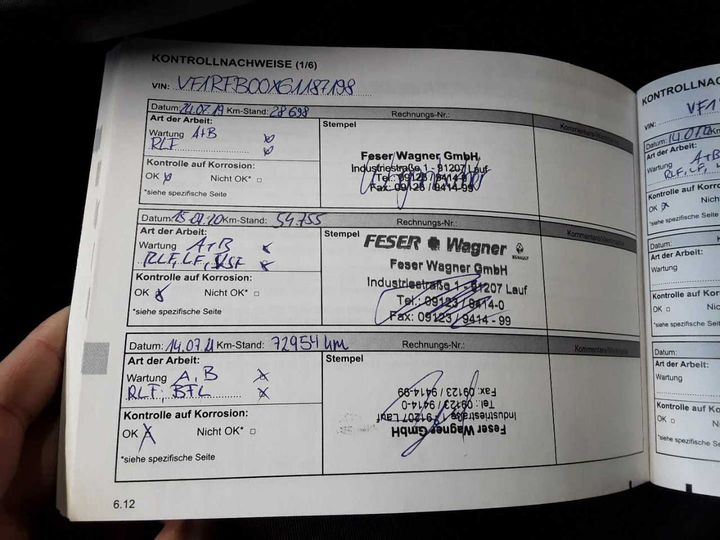 KONTROLLNACHWEISE (1/6)
VIN: VF1RFB00X61187198
Datum: 24.07.19 Km-Stand: 28698 Rechnungs-Nr.:
Art der Arbeit:
Wartung A+B
RLF
Kontrolle auf Korrosion:
OK Nicht OK*
*siehe spezifische Seite
Stempel
Feser Wagner GmbH
Industriestraße 1 - 91207 Lauf
Tel.: 09123 / 9414-0
Fax: 09123 / 9414-99
Datum: 15.07.20 Km-Stand: 54.755 Rechnungs-Nr.:
Art der Arbeit:
Wartung A+B
RLF, LF,
Kontrolle auf Korrosion:
OK Nicht OK*
*siehe spezifische Seite
Stempel
FESER Wagner
RENAULT
Feser Wagner GmbH
Industriestraße 1 - 91207 Lauf
Tel.: 09123 / 9414-0
Fax: 09123 / 9414 - 99
Datum: 14.07.21 Km-Stand: 72954 km Rechnungs-Nr.:
Art der Arbeit:
Wartung A, B
RLF, BFL
Kontrolle auf Korrosion:
OK Nicht OK*
*siehe spezifische Seite
Stempel
Feser Wagner GmbH
Industriestraße 1 91207 Lauf
Tel.: 09123 / 9414-0
Fax: 09123 / 9414-99
6.12
KONTROLLNAC
VIN: VF1
Datum:
Art der Arbeit:
Wartung A+B
RLF, LF,
Kontrolle auf Korro
OK Nich
*siehe spezifische Seite
Art der Arbeit:
Wartung
Kontrolle auf Korr
OK Nic
*siehe spezifische Seite
Datum:
Art der Arbeit:
Wartung
Kontrolle auf Ko
OK N
*siehe spezifische Se